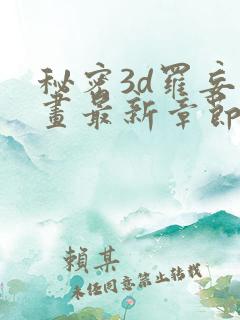 秘密3d罹妄
畫最新章節
賴某
未经同意禁止转载